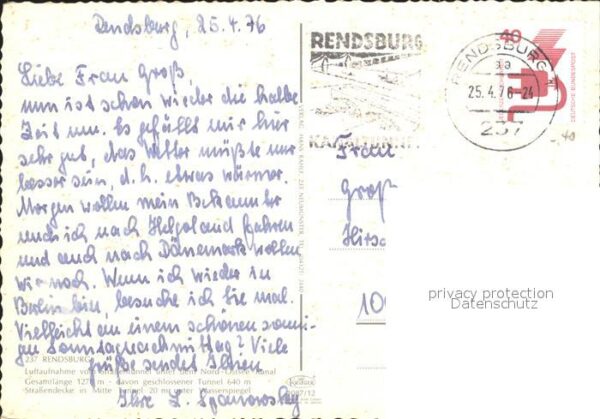 Rendsburg, 25.4.76
Liebe Frau Groß,
nun ist schon wieder die halbe
Zeit um. Es gefällt mir hier
sehr gut, das Wetter müßte nur
besser sein, d.h. etwas wärmer.
Morgen wollen mein Bekannter
und ich nach Helgoland fahren
und auch nach Dänemark wollen
wir noch. Wenn ich wieder in
Berlin bin, besuche ich Sie mal.
Vielleicht an einem schönen sonni-
gen Sonntagnachmittag? Viele
Grüße sendet Ihnen
Ihre L.
237 RENDSBURG
Luftaufnahme vom Straßentunnel unter dem Nord-Ostsee-Kanal
Gesamtlänge 1278 m - davon geschlossener Tunnel 640 m
Straßendecke in Mitte Tunnel 20 m unter Wasserspiegel
RENDSBURG
RENDSBURG
aa
25.4.76-24
237
40
DEUTSCHE BUNDESPOST
Frau
Groß
Hirsc
10
privacy protection
Datenschutz